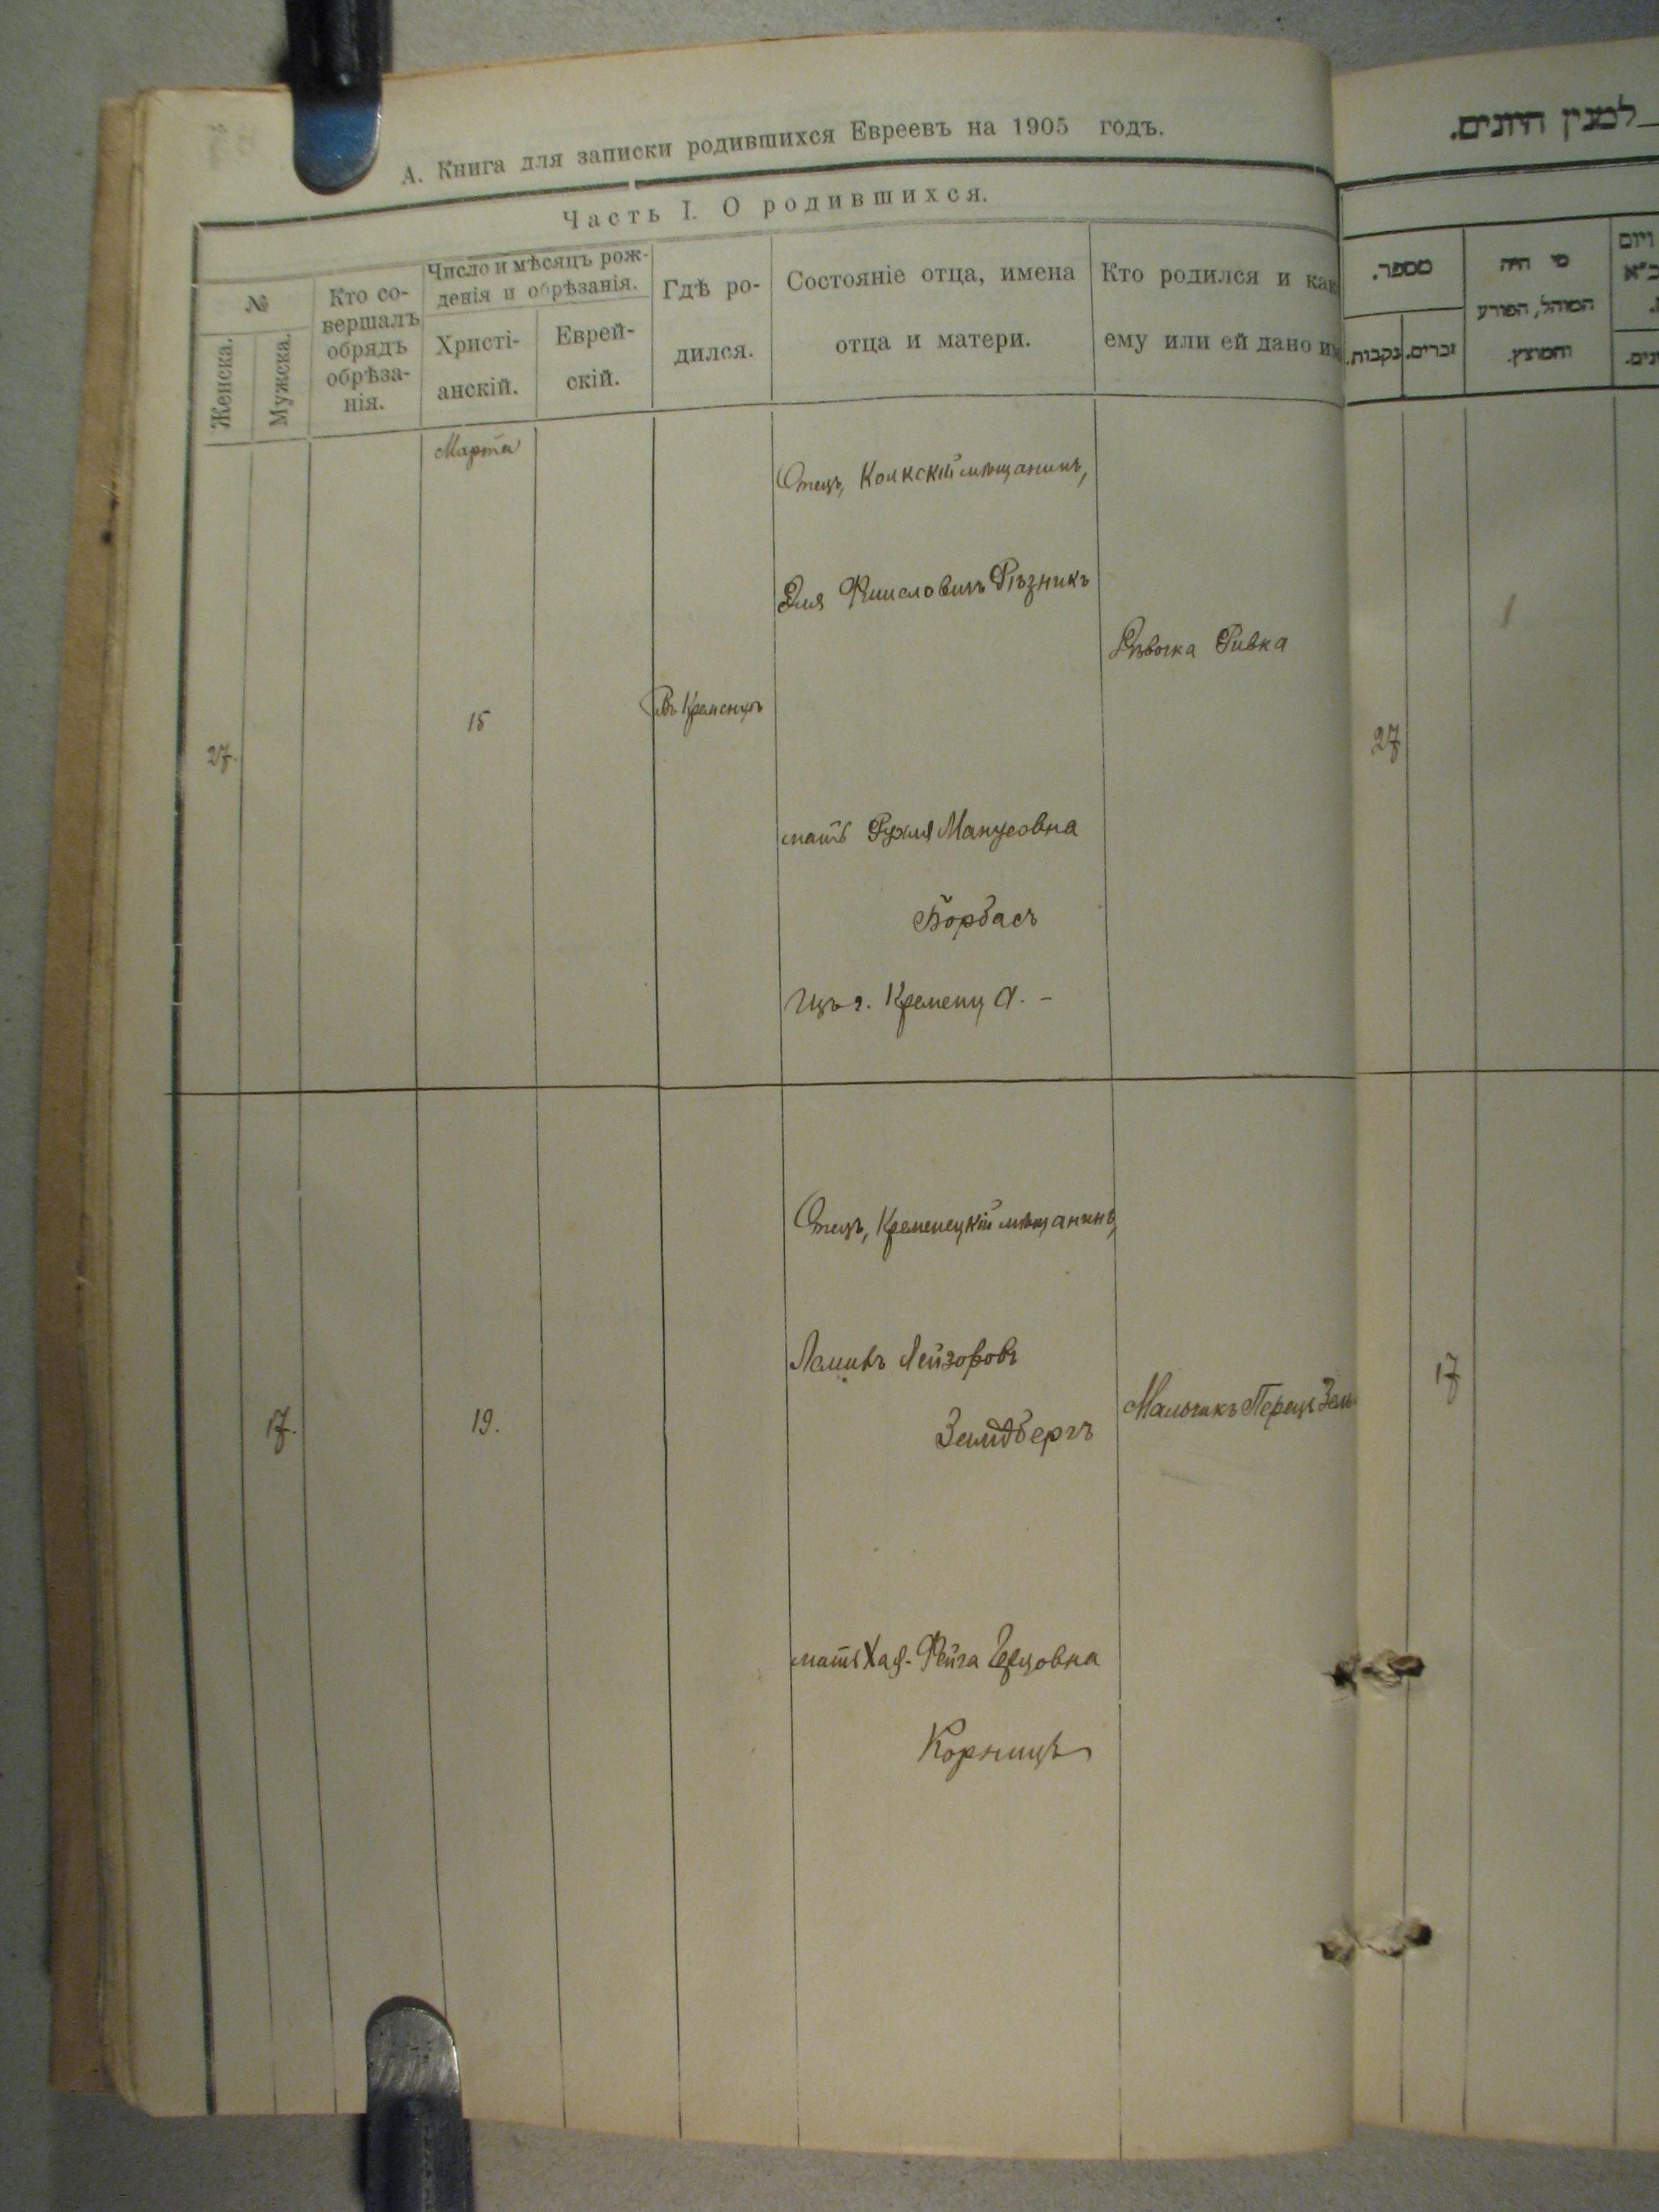 А. Книга для записки родившихся Евреевъ на 1905 годъ.
Часть I. О родившихся.
№
Женска.
Мужска.
Кто со-
вершалъ
обрядъ
обрѣза-
нія.
Число и мѣсяцъ рож-
денія и обрѣзанія.
Христі-
анскій.
Еврей-
скій.
Гдѣ ро-
дился.
Состояніе отца, имена
отца и матери.
Кто родился и как
ему или ей дано им
Марта
27.
15
Въ Кременцѣ
Отецъ, Колкскій мѣщанинъ,
Эля Фишеловичъ Рѣзникъ
мать Рухля Манусовна
Борбасъ
Изъ г. Кременца. -
Дѣвочка Ривка
17.
19.
Отецъ, Кременецкій мѣщанинъ,
Лейзоровъ
Земдбергъ
мать Хая-Фейга Герцовна
Корницъ
Мальчикъ Перецъ Зель
למנין היונים.
מספר.
נקבות.
זכרים.
מי היה
המוהל, הפורע
והמוצץ.
ויום
27
17